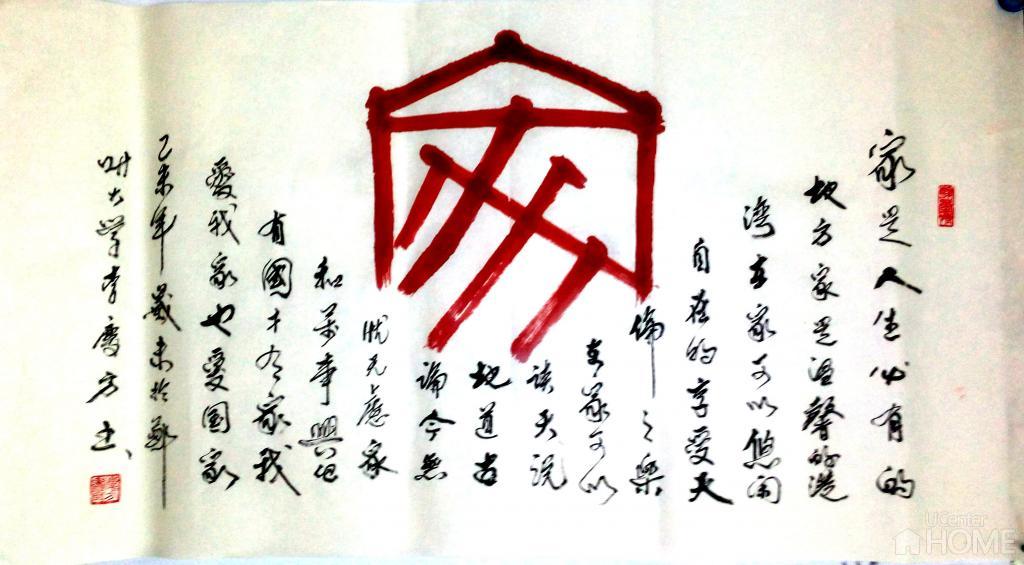 家是人生必有的
地方家是温馨的港
湾在家可以悠闲
自在的享受天
倫之樂
在家可以
談天说
地道古
論今無
忧无慮家
和萬事興但
有國才有家我
愛我家也愛国家
乙未年 歲末於鄭
州大学李慶方書
家
UCenter
HOME